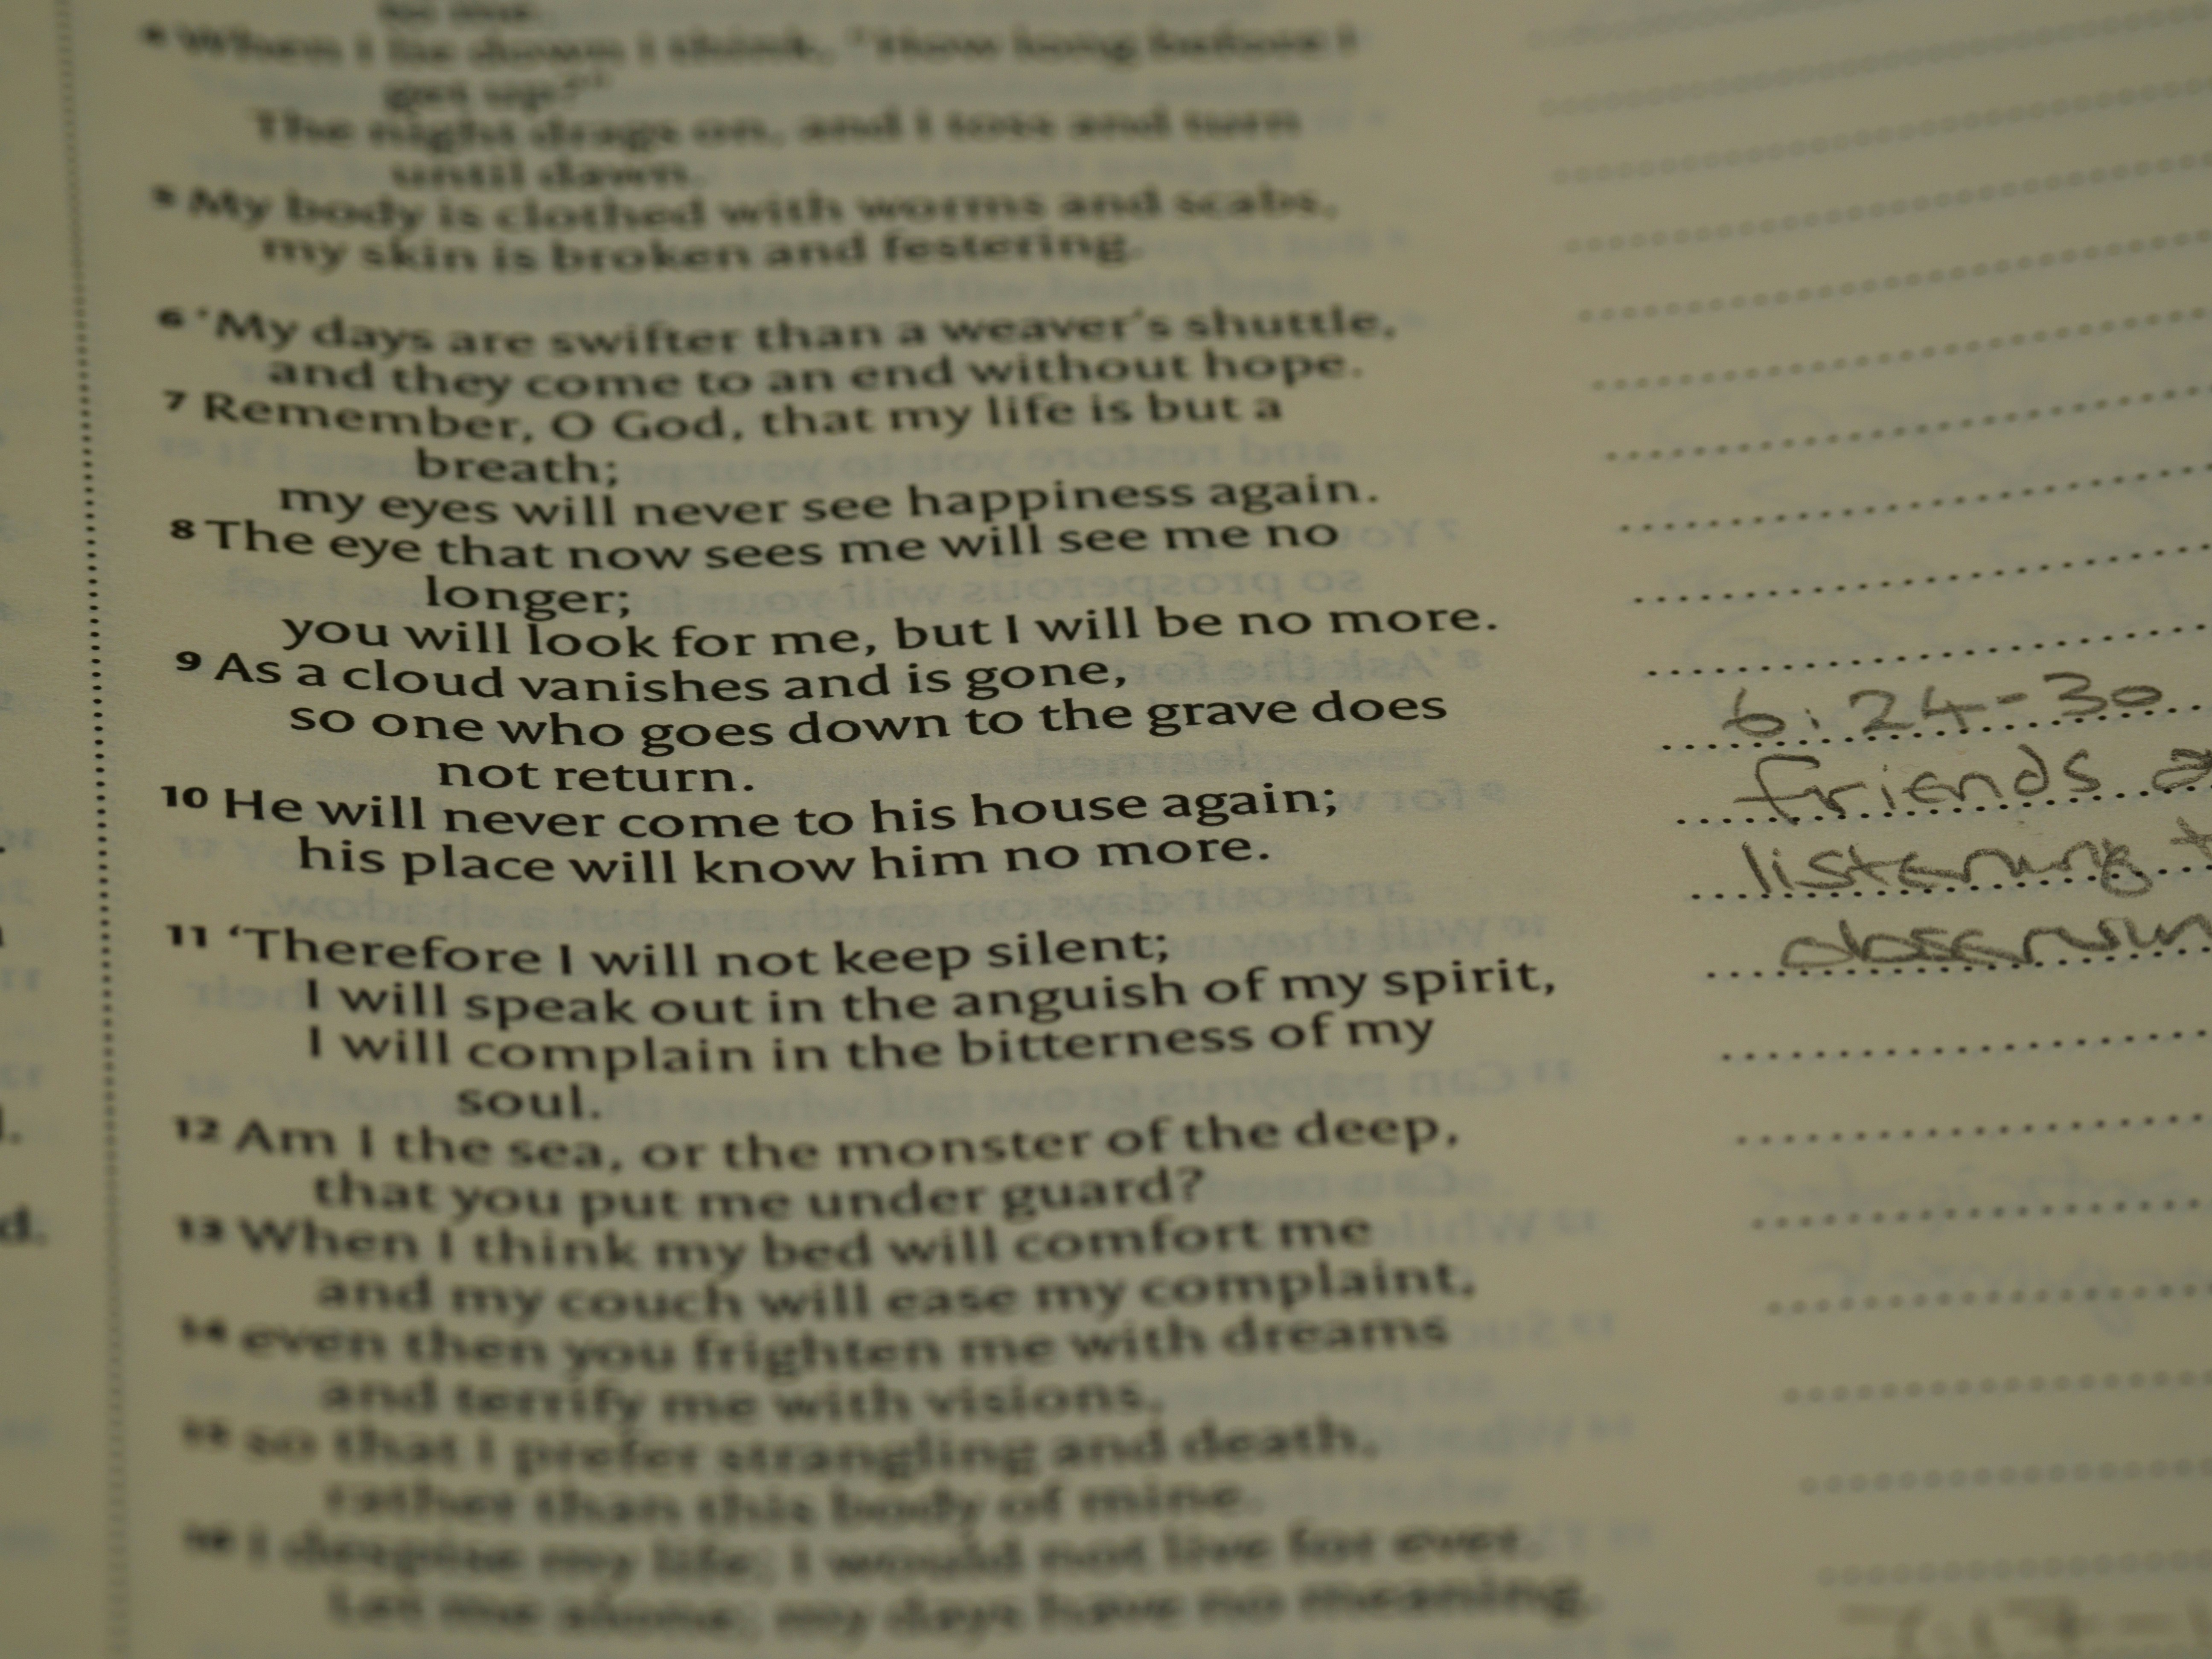 4 When I lie down I think, "How long before I
get up?"
The night drags on, and I toss and turn
until dawn.
5 My body is clothed with worms and scabs,
my skin is broken and festering.
6 ‘My days are swifter than a weaver’s shuttle,
and they come to an end without hope.
7 Remember, O God, that my life is but a
breath;
my eyes will never see happiness again.
8 The eye that now sees me will see me no
longer;
you will look for me, but I will be no more.
9 As a cloud vanishes and is gone,
so one who goes down to the grave does
not return.
10 He will never come to his house again;
his place will know him no more.
11 ‘Therefore I will not keep silent;
I will speak out in the anguish of my spirit,
I will complain in the bitterness of my
soul.
12 Am I the sea, or the monster of the deep,
that you put me under guard?
13 When I think my bed will comfort me
and my couch will ease my complaint,
14 even then you frighten me with dreams
and terrify me with visions,
15 so that I prefer strangling and death,
rather than this body of mine.
16 I despise my life; I would not live for ever.
Let me alone; my days have no meaning.
6:24-30
friends
listening